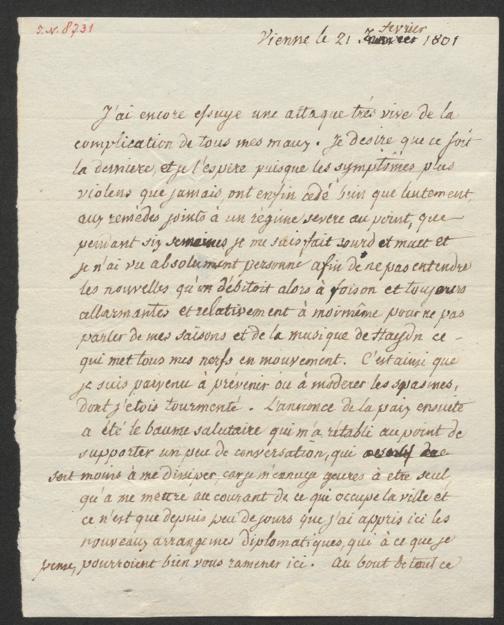 J.N. 8731
Vienne le 21 fevrier 1801
J'ai encore essuyé une attaque très vive de la
complication de tous mes maux. Je desire que ce soit
la derniere, et je l'espère puisque les symptômes plus
violens que jamais ont enfin cedé bien que lentement,
aux remèdes joints à un regime severe au point, que
pendant six semaines je me suis fait sourd et muet et
je n'ai vu absolument personne afin de ne pas entendre
les nouvelles qu'on débitoit alors à foison et toujours
allarmantes et relativement à moimême pour ne pas
parler de mes saisons et de la musique de Haydn ce
qui met tous mes nerfs en mouvement. C'est ainsi que
je suis parvenu à prévenir ou à modérer les spasmes,
dont j'etois tourmenté. L'annonce de la paix ensuite
a été le baume salutaire qui m'a rétabli au point de
supporter un peu de conversation, qui
sert moins à me dissiper, car je m'ennuye gueres à etre seul,
qu'à me mettre au courant de ce qui occupe la ville et
ce n'est que depuis peu de jours que j'ai appris ici les
nouveaux arrangemes diplomatiques, qui à ce que je
pense, pourroient bien vous ramener ici. Au bout de tout ce